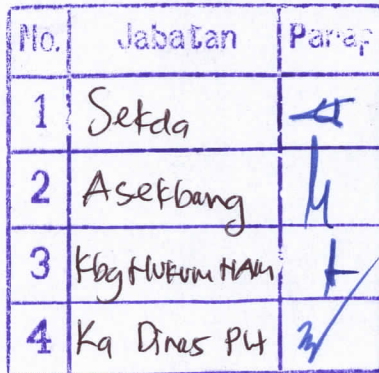 No. Jabatan Paraf
1 Sekda
2 Asekbang
3 Kbg HUKUM HAM
4 Ka Dinas PU